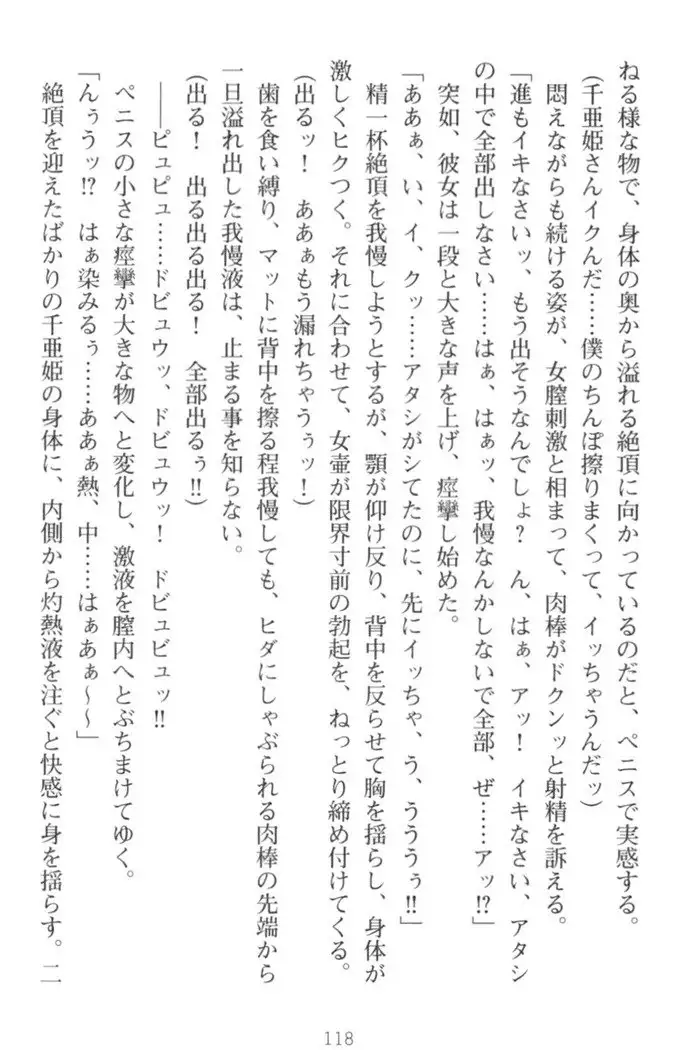 ねる様な物で、身体の奥から溢れる絶頂に向かっているのだと、ペニスで実感する。
(千亜姫さんイクんだ……僕のちんぽ擦りまくって、イッちゃうんだッ)
悶えながらも続ける姿が、女膣刺激と相まって、肉棒がドクンッと射精を訴える。
「進もイキなさいッ、もう出そうなんでしょ？　ん、はぁ、アッ！　イキなさい、アタシ
の中で全部出しなさい……はぁ、はぁッ、我慢なんかしないで全部、ぜ……アッ!?」
突如、彼女は一段と大きな声を上げ、痙攣し始めた。
「ああぁ、い、イ、クッ……アタシがシてたのに、先にイッちゃ、う、うううぅ!!」
精一杯絶頂を我慢しようとするが、顎が仰け反り、背中を反らせて胸を揺らし、身体が
激しくヒクつく。それに合わせて、女壷が限界寸前の勃起を、ねっとり締め付けてくる。
(出るッ！　ああぁもう漏れちゃうぅッ！)
歯を食い縛り、マットに背中を擦る程我慢しても、ヒダにしゃぶられる肉棒の先端から
一旦溢れ出した我慢液は、止まる事を知らない。
(出る！　出る出る出る！　全部出るぅ!!)
――ピュピュ……ドビュウッ、ドビュウッ！　ドビュビュッ!!
ペニスの小さな痙攣が大きな物へと変化し、激液を膣内へとぶちまけてゆく。
「んぅうッ!?　はぁ染みるぅ……ああぁ熱、中……はぁあぁ～～」
絶頂を迎えたばかりの千亜姫の身体に、内側から灼熱液を注ぐと快感に身を揺らす。二
118